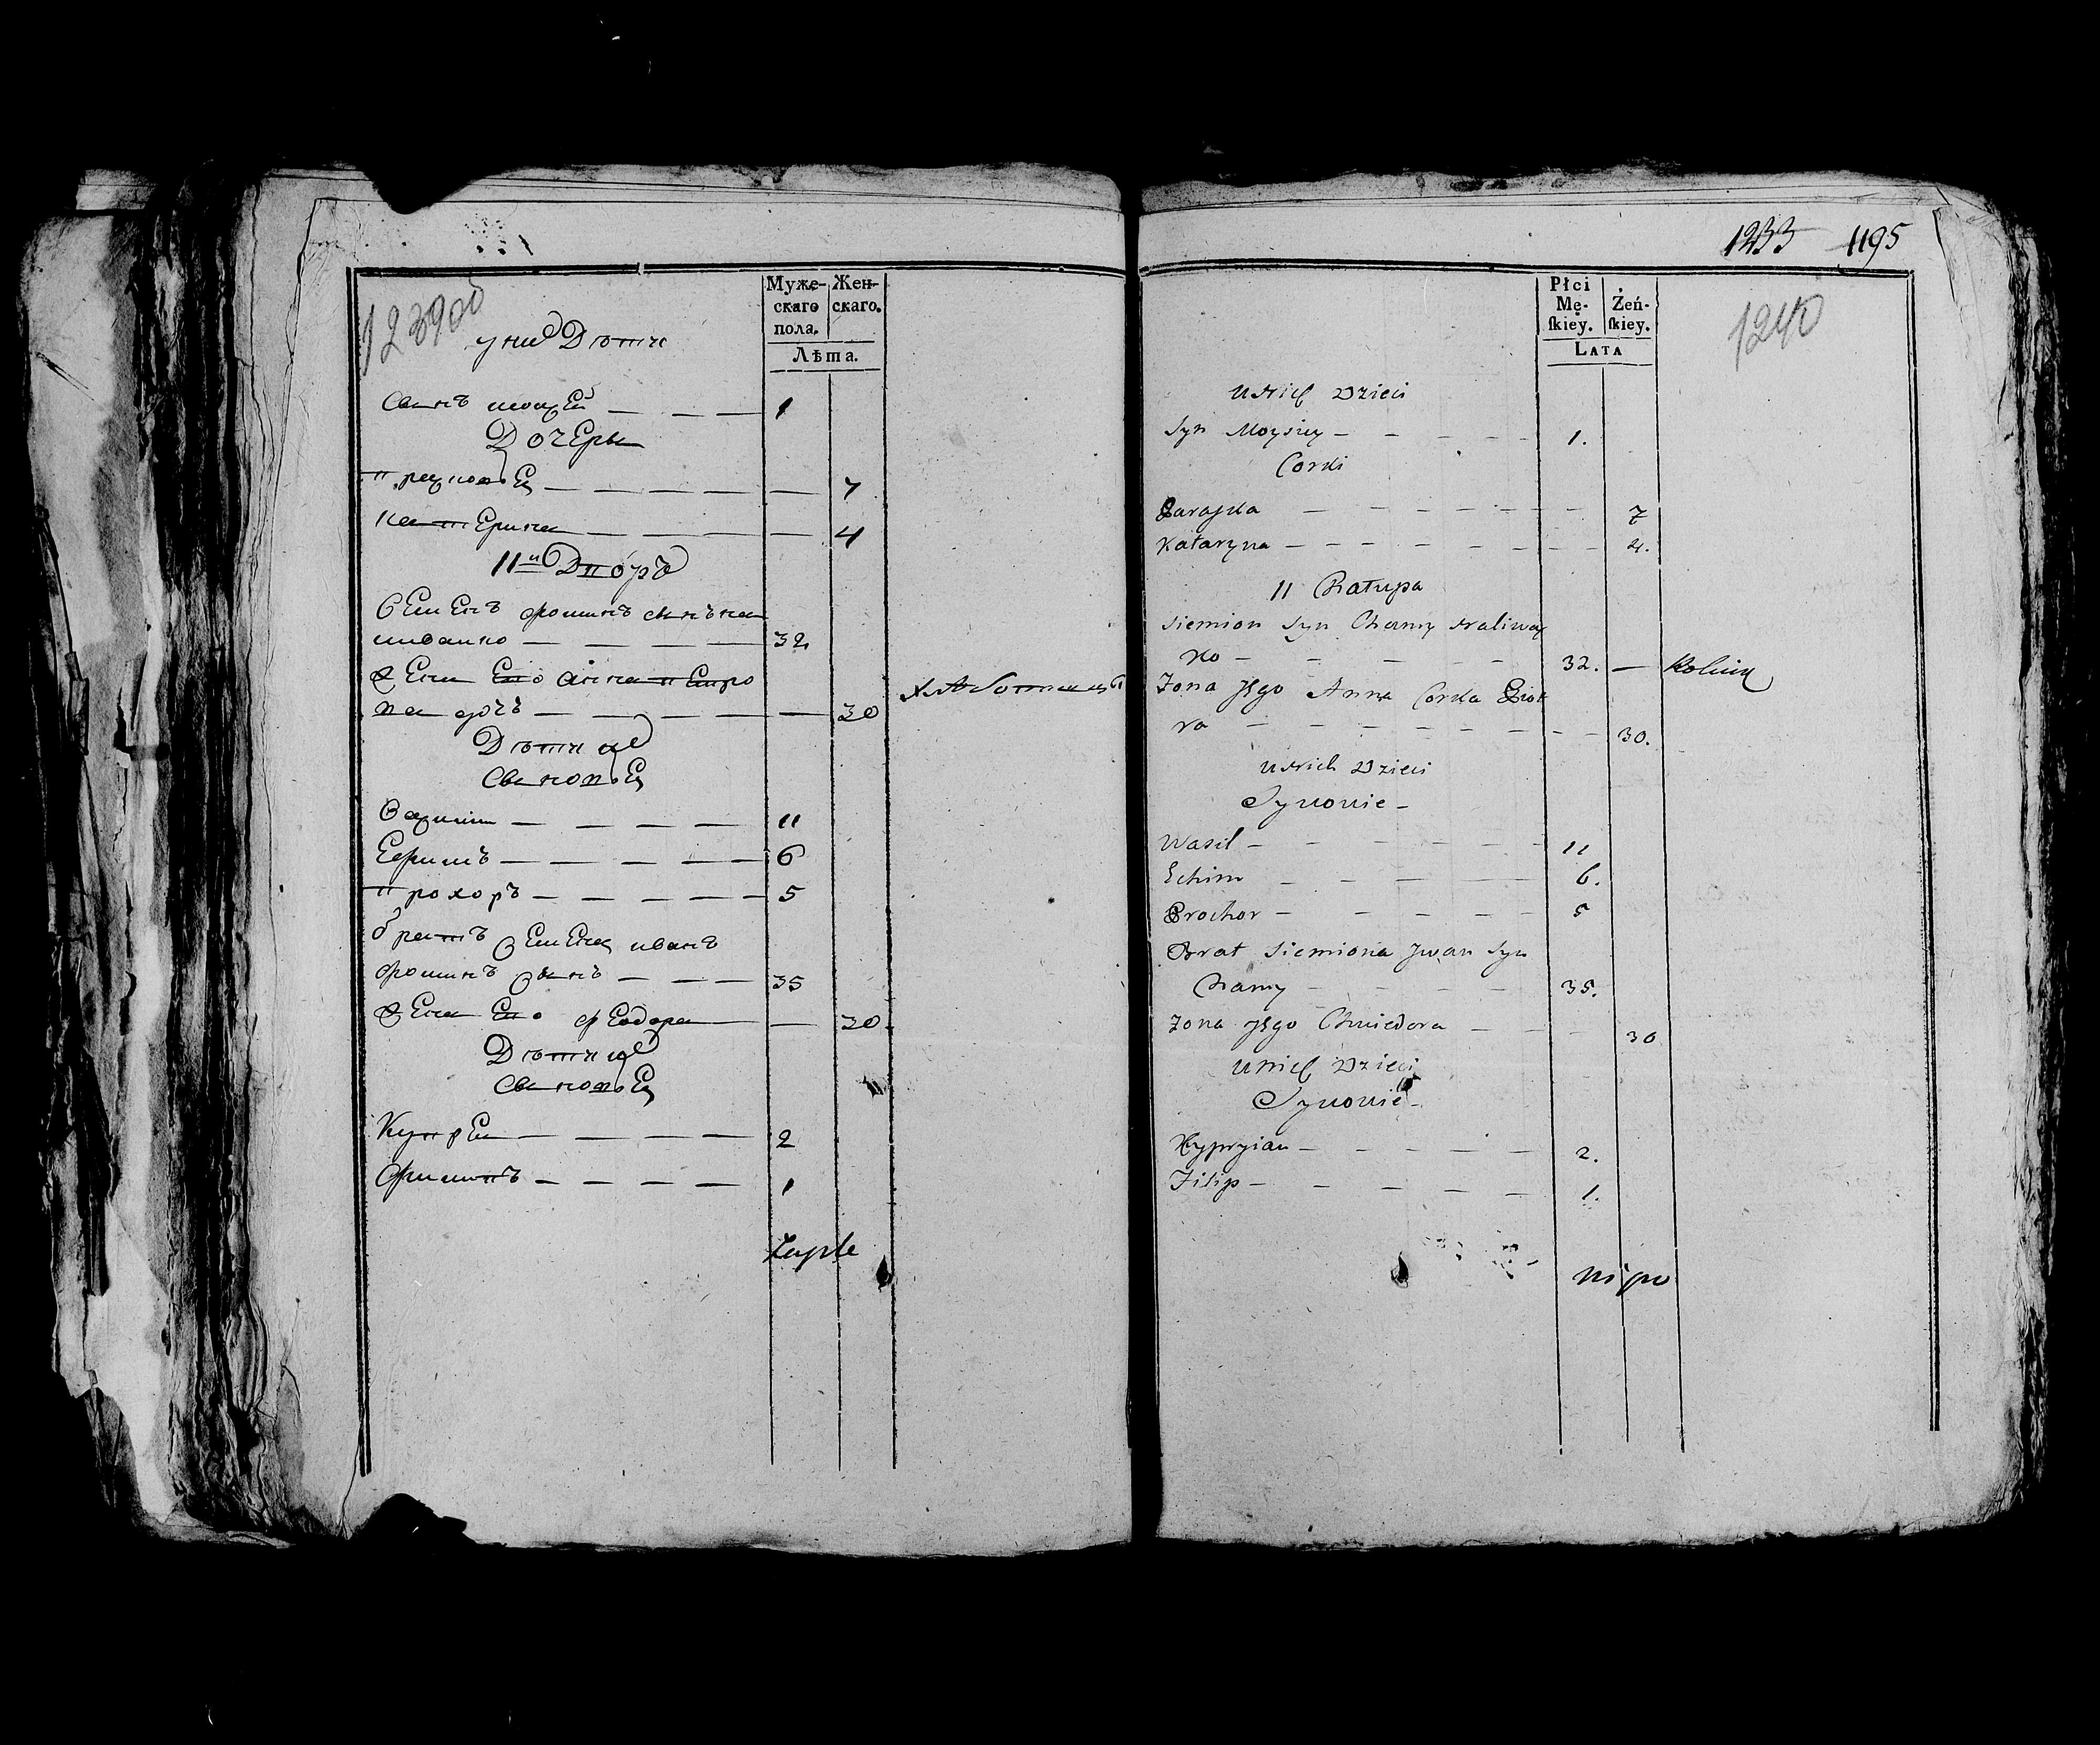 1239 об
Муже-
скаго
пола.
Жен-
скаго.
Лѣта.
у них Дѣти
Сынъ моисей — — — 1
Дочеры
— — — — — 7
катерина — — — 4
11й Двóръ
Семенъ фоминъ сынъ на
ливайко — — — — 32
жена его анна петро
ва дочь — — — — — 30
Дѣти их
Сыновьей
Василій — — — — 11
Ефимъ — — — — 6
прохоръ — — — — — 5
братъ Семена иванъ
фоминъ Сынъ — — — 35
жена его феодора — 30
Дѣти их
Сыновьей
Купрей — — — — 2
Филипъ — — — — 1
1233 1195
1240
Płci
Mę-
skiey.
Żeń-
skiey.
Lata
u Nich Dzieci
Syn Moysiey — — — — — 1.
Corki
Paraska — — — — — — — 7
Katarzyna — — — — — — — 4.
11 Chałupa
Siemion Syn Chamy Naliway
ko — — — — — 32. — Rolnik
Zona Jego Anna Corka Piot
ra — — — — — — — 30.
u Nich Dzieci
Synowie —
Wasil — — — — — — 11
Echim — — — — — 6.
Prochor — — — — — 5
Brat Siemiona Jwan Syn
Chamy — — — — — 35.
Zona Jego Chwiedora — — — 30
u Nich Dzieci
Synowie —
Kypryian — — — — — — 2.
Filip — — — — — 1.